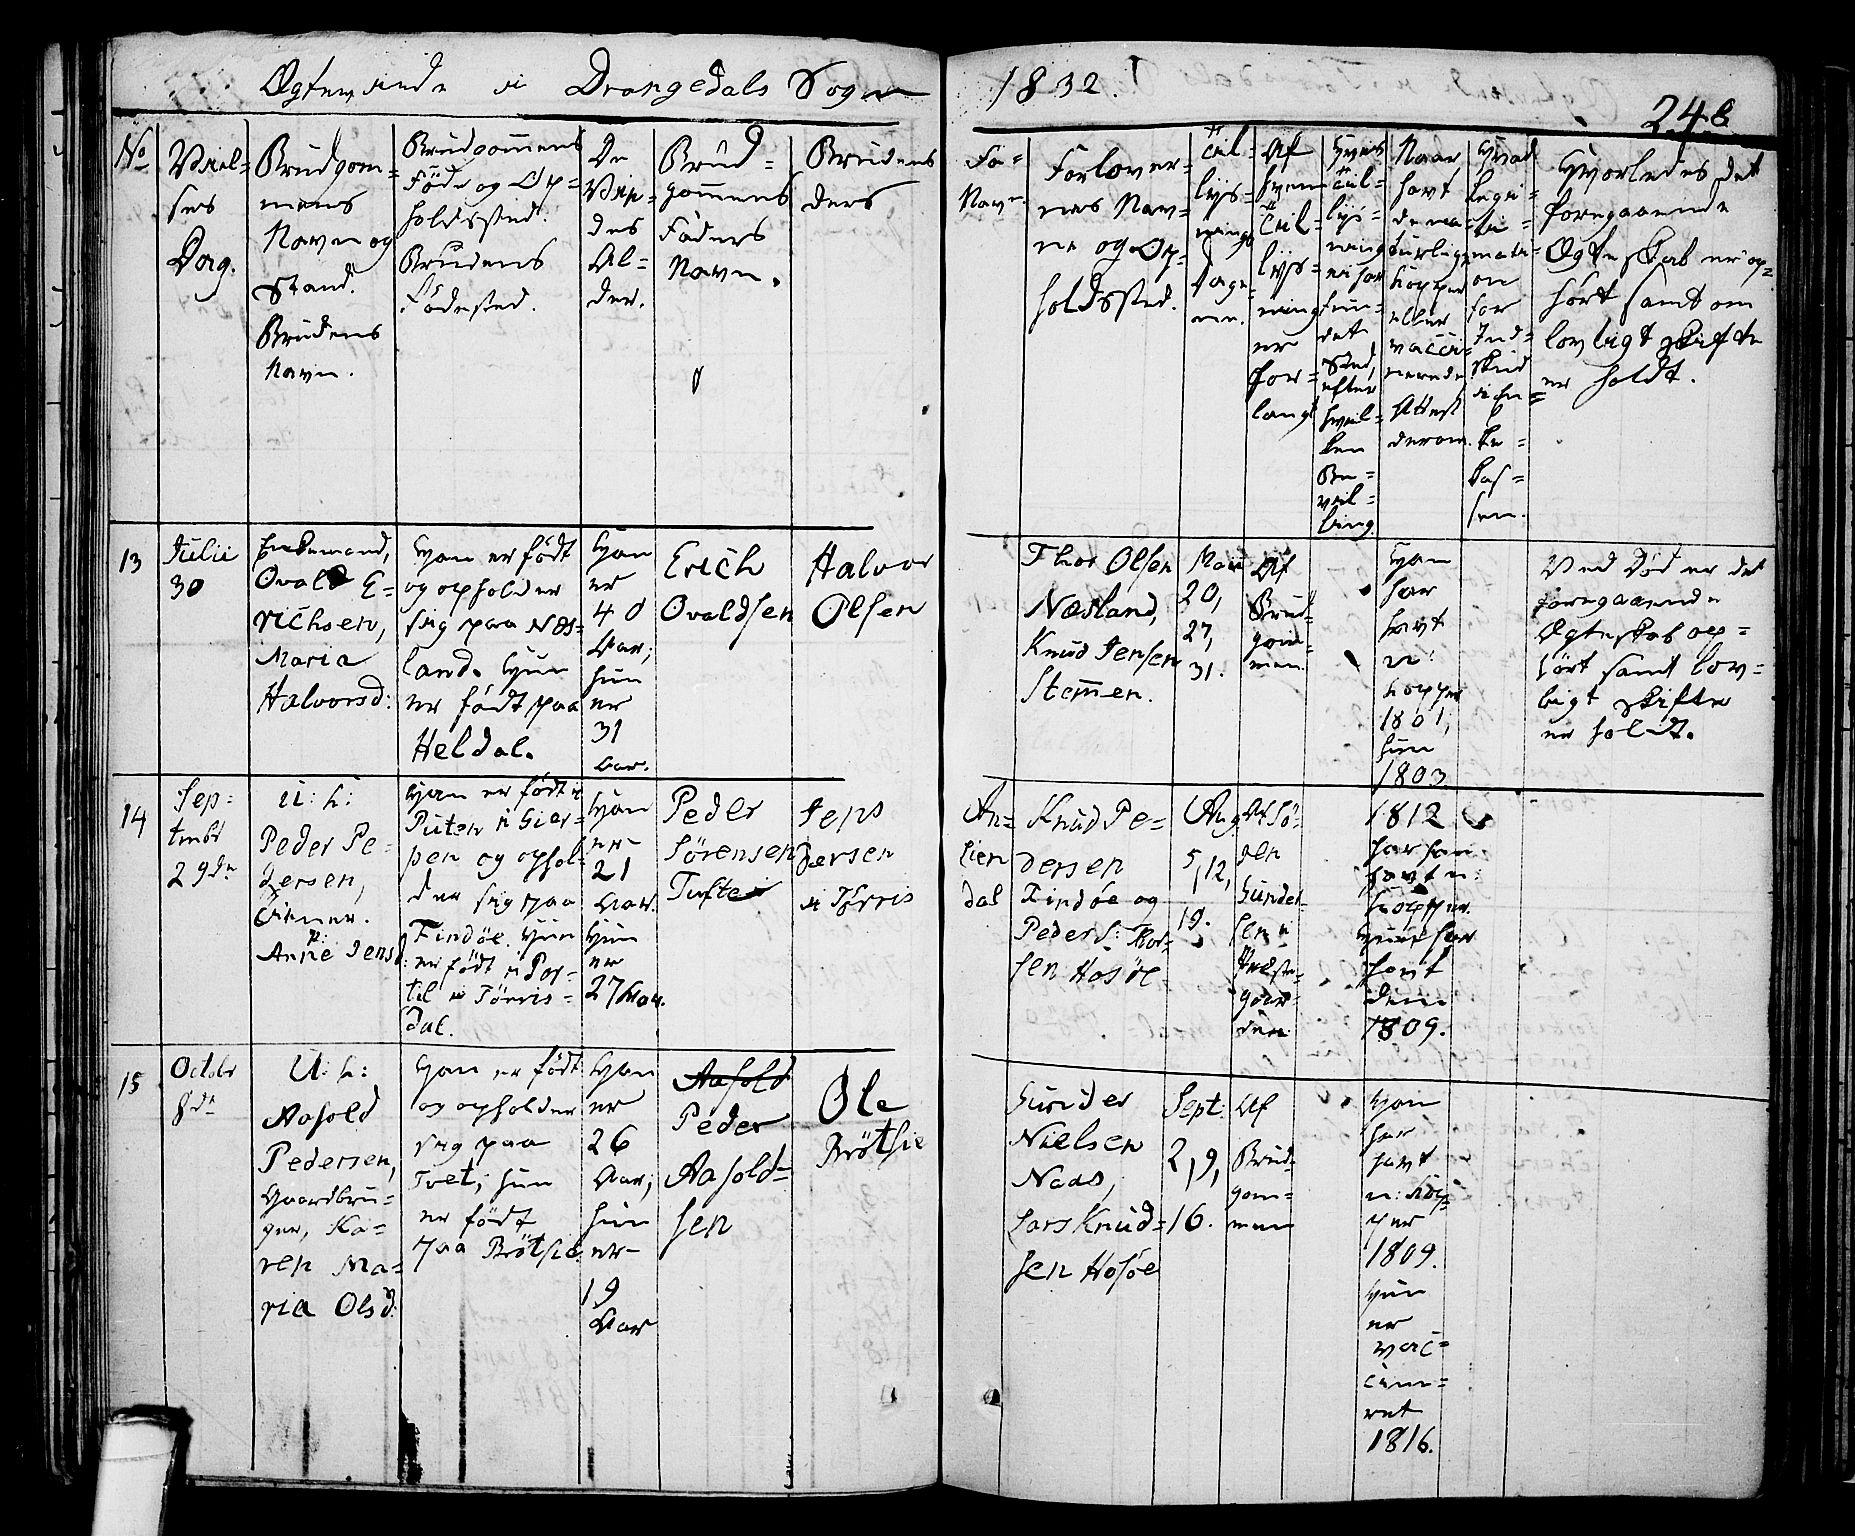 Ægteviede i Drangedals Sogn
1832.
248
No
Vriel-
ses
Dag.
Brudgom-
mens
Navn og
Stand.
Brudens
Navn.
Brudgommens
Føde og Op-
holdssted.
Brudens
Fødested.
De
Vie-
des
Al-
der.
Brud-
gommens
Faders
Navn.
Brudens
ders
Fa-
Navn.
Forlover-
nes Nav-
ne og Op-
holdssted.
Til-
lys-
nings
Dage-
ne.
Af
hvem
Til-
lys-
ning
er
for-
langt
Hvis
Til-
lys-
ning
ei har
fun-
det
Sted,
efter
hvil-
ken
Be-
vil-
ling.
Naar
havt
de na-
turlige
Kopper
eller
vacci-
nerede
Attest
derom.
Hvad
Legi-
ti-
mati-
on
for
Ind-
skud
i En-
ke-
Kas-
sen.
Hvorledes det
foregaaende
Ægteskab er op-
hørt samt om
lovligt Skifte
er holdt.
13
Julii
30
Enkemand,
Ovald E-
richsen,
Maria
Halvorsd:
Han er født
og opholder
sig paa Næs-
land. Hun
er født paa
Heldal.
Han
er
40
Aar;
hun
er
31
Aar.
Erich
Ovaldsen
Halvor
Olsen
Thor Olsen
Næsland,
Knud Jensen
Stemmen.
Maii
20,
27,
31.
Af
Brud-
gom-
men.
Han
har
havt
n:
kopper
1801,
hun
1803.
Ved Død er det
foregaaende
Ægteskab op-
hørt samt lov-
ligt Skifte
er holdt.
14
Sep-
tmbr
29de
U: h:
Peder Pe-
dersen,
Anne Jensd:
Han er født i
Gier-
pen og ophol-
der sig paa
Findøe. Hun
er født i Por-
tel i Tørris-
dal.
Han
er
21
Aar.
Hun
er
27 Aar.
Peder
Sörensen
Tufte
Jens
Dersen
i Törris
An-
dal
Knud Pe-
dersen
Findöe og
Peder S: Thor-
sen Hosöe
Aug.
5, 12,
19.
Af Sö-
ren
Gunder-
sen i
Præste-
gaar-
den
1812
har han
havt n:
Kopper.
Hun har
havt
dem
1809.
15
Octobr
8de
U: h:
Aasold
Pedersen,
Gaardbru-
ger, Ka-
ren Ma-
ria Olsd:
Han er født
og opholder
sig paa
Tvet; hun
er født
paa Brötsie.
Han
er
26
Aar;
hun
er
19
Aar
Aasold
Peder
Aasold-
sen
Ole
Brötsie
Gunder
Nielsen
Naas,
Lars Knud-
sen Hosöe
Sept.
2, 9,
16.
Af
Brud-
gom-
men
Han
har
havt
n: Kop-
per
1809.
Hun
er
vac-
cine-
ret
1816.